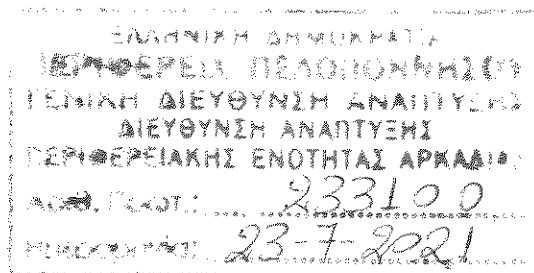 ΕΛΛΗΝΙΚΗ ΔΗΜΟΚΡΑΤΙΑ
ΠΕΡΙΦΕΡΕΙΑ ΠΕΛΟΠΟΝΝΗΣΟΥ
ΓΕΝΙΚΗ ΔΙΕΥΘΥΝΣΗ ΑΝΑΠΤΥΞΗΣ
ΔΙΕΥΘΥΝΣΗ ΑΝΑΠΤΥΞΗΣ
ΠΕΡΙΦΕΡΕΙΑΚΗΣ ΕΝΟΤΗΤΑΣ ΑΡΚΑΔΙΑΣ
Αριθ. Πρωτ.: 233100
Ημερομηνία: 23-7-2021